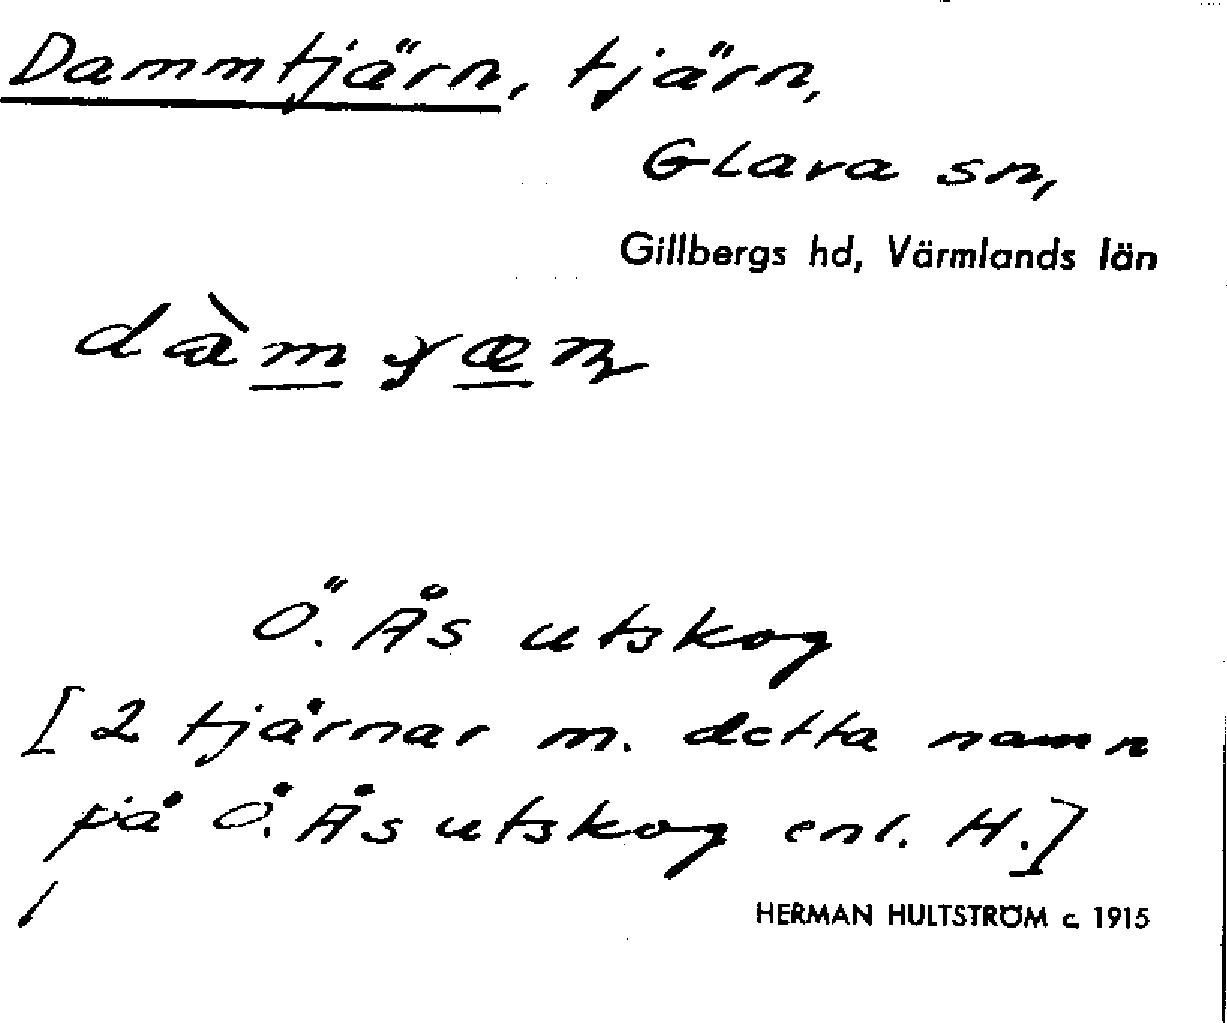 Dammtjärn, tjärn,
Glava sn,
Gillbergs hd, Värmlands län
Ö. Ås utskog
[2 tjärnar m. detta namn
på Ö. Ås utskog enl. H.]
HERMAN HULTSTRÖM c. 1915